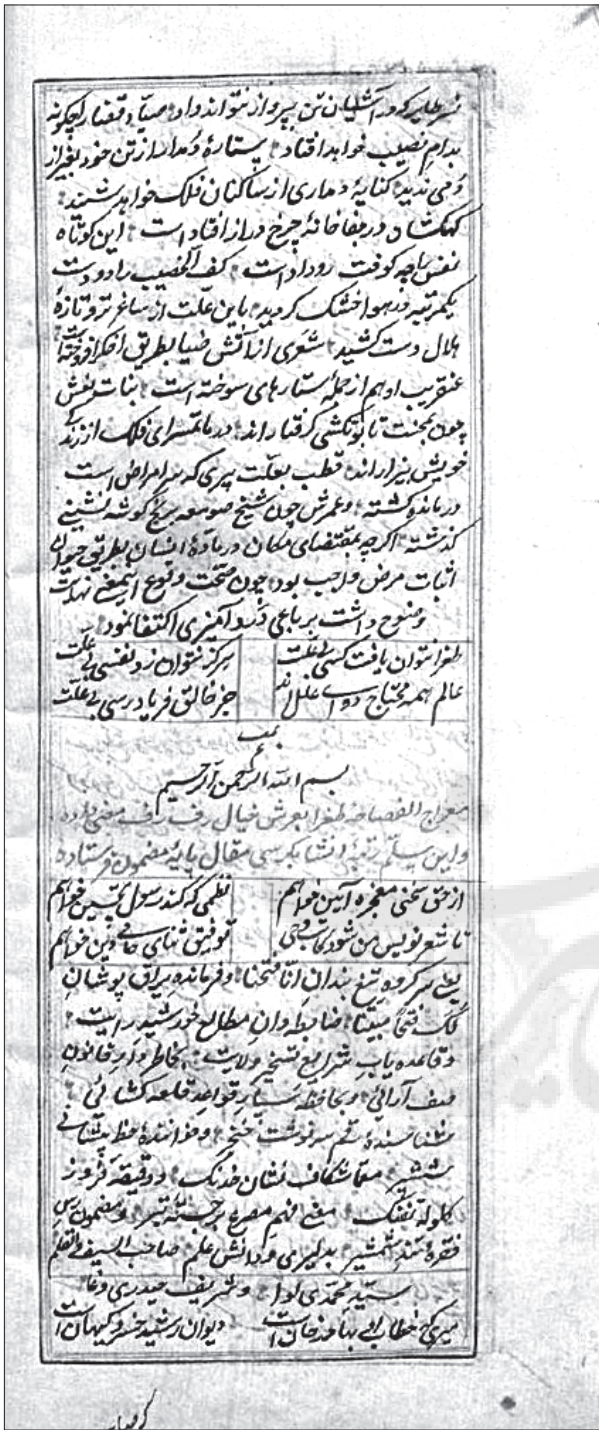 نسر طایر که در آشیان تن پرواز نتواند داد صیاد قضا را چگونه
بدام نصیب خواهد افتاد ستارهٔ دمدار از تن خود بغیر از
دمی ندید کنایهٔ دمداری از ساکنان فلک خواهد شنید
کهکشان در شفاخانهٔ چرخ دراز افتاده است این کوتاه
نفس را چه کوفت رو داده است کف الخضیب را دو دست
یکمرتبه در هوا خشک گردید باین علت از ساغر تر و تازهٔ
هلال دست کشید شعری از آتش ضیا بطریق اخگر افروخته است
عنقریب او هم از جمله ستارهای سوخته است بنات نعش
چون بمحنت تابوتکشی گرفتار اند در ماتمسرای فلک از زندگی
خویش بیزار اند قطب بعلت پیری که سر امراض است
درمانده گشته و عمرش چون شیخ صومعه برنج گوشه نشینی
گذشته اگرچه بمقتضای مکان در مادهٔ انسان بطریق حیوان
اثبات مرض واجب بود چون صحت وقوع این معنی نهایت
وضوح داشت برباعی درد آمیزی اکتفا نمود
طغرا نتوان یافت کسی بی علت هرگز نتوان زد نفسی بی علت
عالم همه محتاج دوای علل اند جز خالق فریادرسی بی علت
بسم الله الرحمن الرحیم
معراج الفصاحه طغرا بعرش خیال رفرف معنی داده
و این سلم رتبهٔ انشا بکرسی مقال پایهٔ مضمون فرستاده
از حق سخنی معجزه آیین خواهم نظمی که کند رسول تحسین خواهم
تا شعر نویس من شود کاتب وحی توفیق ثنای حامی دین خواهم
یعنی سر گروه تیغ بندان انا فتحنا و فرمانده یراق پوشان
لک فتحا مبینا ضابطه دان مطالع خورشید رایت
و قاعده یاب شرایع تسخیر ولایت بخاطر دار قانون
صف آرائی و بحافظه سپار قواعد قلعه کشائی
شناسندهٔ رقم سرنوشت خنجر و خوانندهٔ خط پیشانی
شمشیر معما شکاف نشان خدنگ و دقیقه فروز
گلولهٔ تفنگ معنی فهم مصرع برجستهٔ تیر و مضمون رس
فقرهٔ تند شمشیر بدلیری و دانش علم صاحب السیف و القلم
سید محمدی لوا و شریف حیدری وغا
میری که خطاب او بهادرخان است دیوان رشید خسرو کیهان است